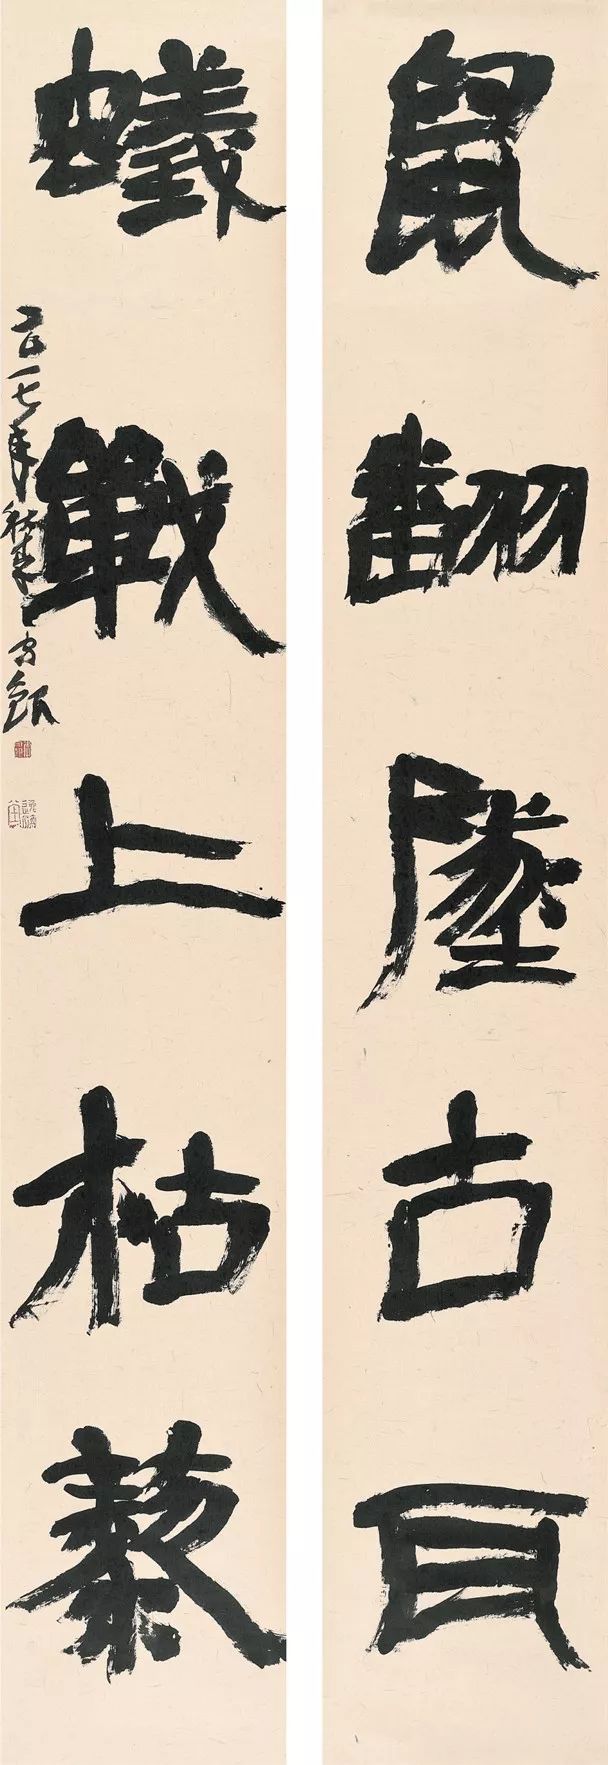 鼠翻墜古瓦
蟻戰上枯藜
二〇一七年秋